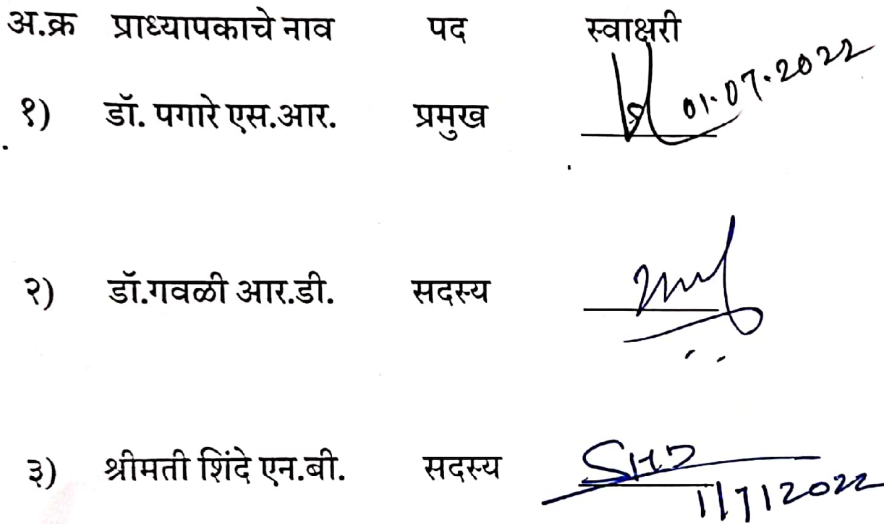 अ.क्र प्राध्यापकाचे नाव पद स्वाक्षरी
१) डॉ. पगारे एस.आर. प्रमुख 01.07.2022
२) डॉ.गवळी आर.डी. सदस्य
३) श्रीमती शिंदे एन.बी. सदस्य
1/7/2022